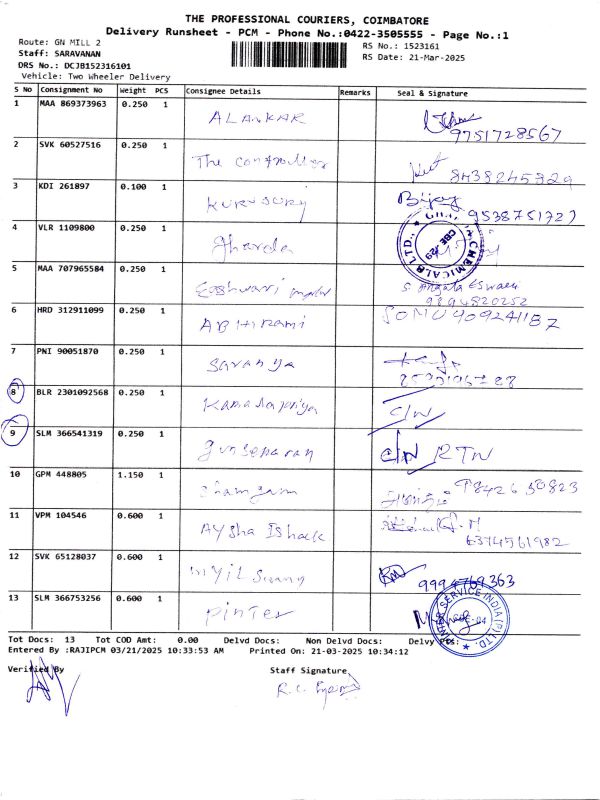 THE PROFESSIONAL COURIERS, COIMBATORE
Delivery Runsheet - PCM - Phone No.:0422-3505555 - Page No.:1
Route: GN MILL 2
RS No.: 1523161
Staff: SARAVANAN
RS Date: 21-Mar-2025
DRS No.: DCJB152316101
Vehicle: Two Wheeler Delivery
S No Consignment No Weight PCS Consignee Details Remarks Seal & Signature
1 MAA 869373963 0.250 1 ALANKAR 9751728567
2 SVK 60527516 0.250 1 The controller 8438245329
3 KDI 261897 0.100 1 KURUSURJ Bijoy 9538751727
4 VLR 1109800 0.250 1 gharda CHEMICALS LTD., CBE /29
5 MAA 707965584 0.250 1 Eashwari S. Angala Eswari 9894820252
6 HRD 312911099 0.250 1 ABHIRAMI SOMU 909241187
7 PNI 90051870 0.250 1 saranya
8 BLR 2301092568 0.250 1 Kamalapriya C/N
9 SLM 366541319 0.250 1 gunseparan C/N RTN
10 GPM 448805 1.150 1 98426 50823
11 VPM 104546 0.600 1 Aysha Ishack 6374561982
12 SVK 65128037 0.600 1 myil 9994769363
13 SLM 366753256 0.600 1 pinter SERVICE INDIA (P) LTD.
Tot Docs: 13 Tot COD Amt: 0.00 Delvd Docs: Non Delvd Docs: Delvy Pts:
Entered By :RAJIPCM 03/21/2025 10:33:53 AM Printed On: 21-03-2025 10:34:12
Verified By Staff Signature